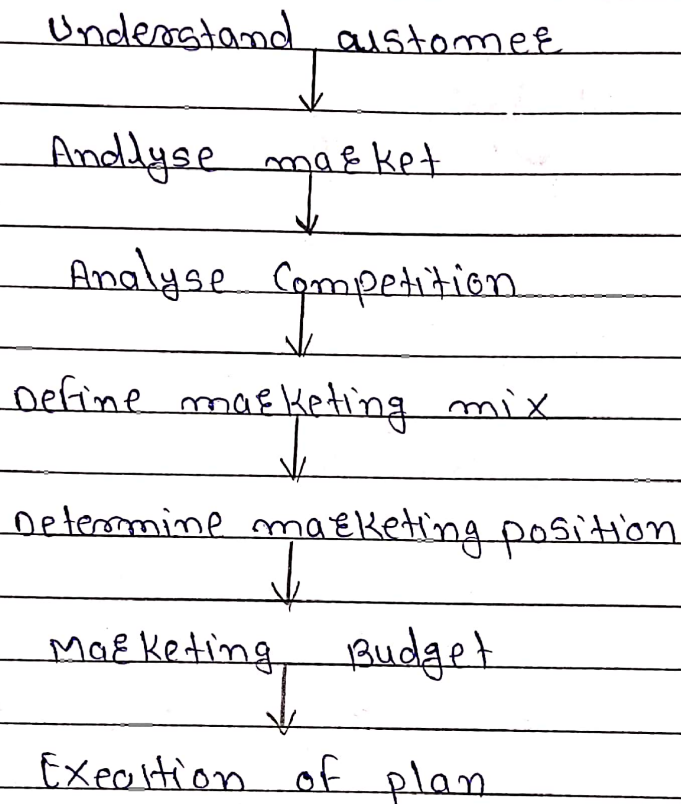 Understand customer
Analyse market
Analyse Competition
Define marketing mix
Determine marketing position
Marketing Budget
Execution of plan